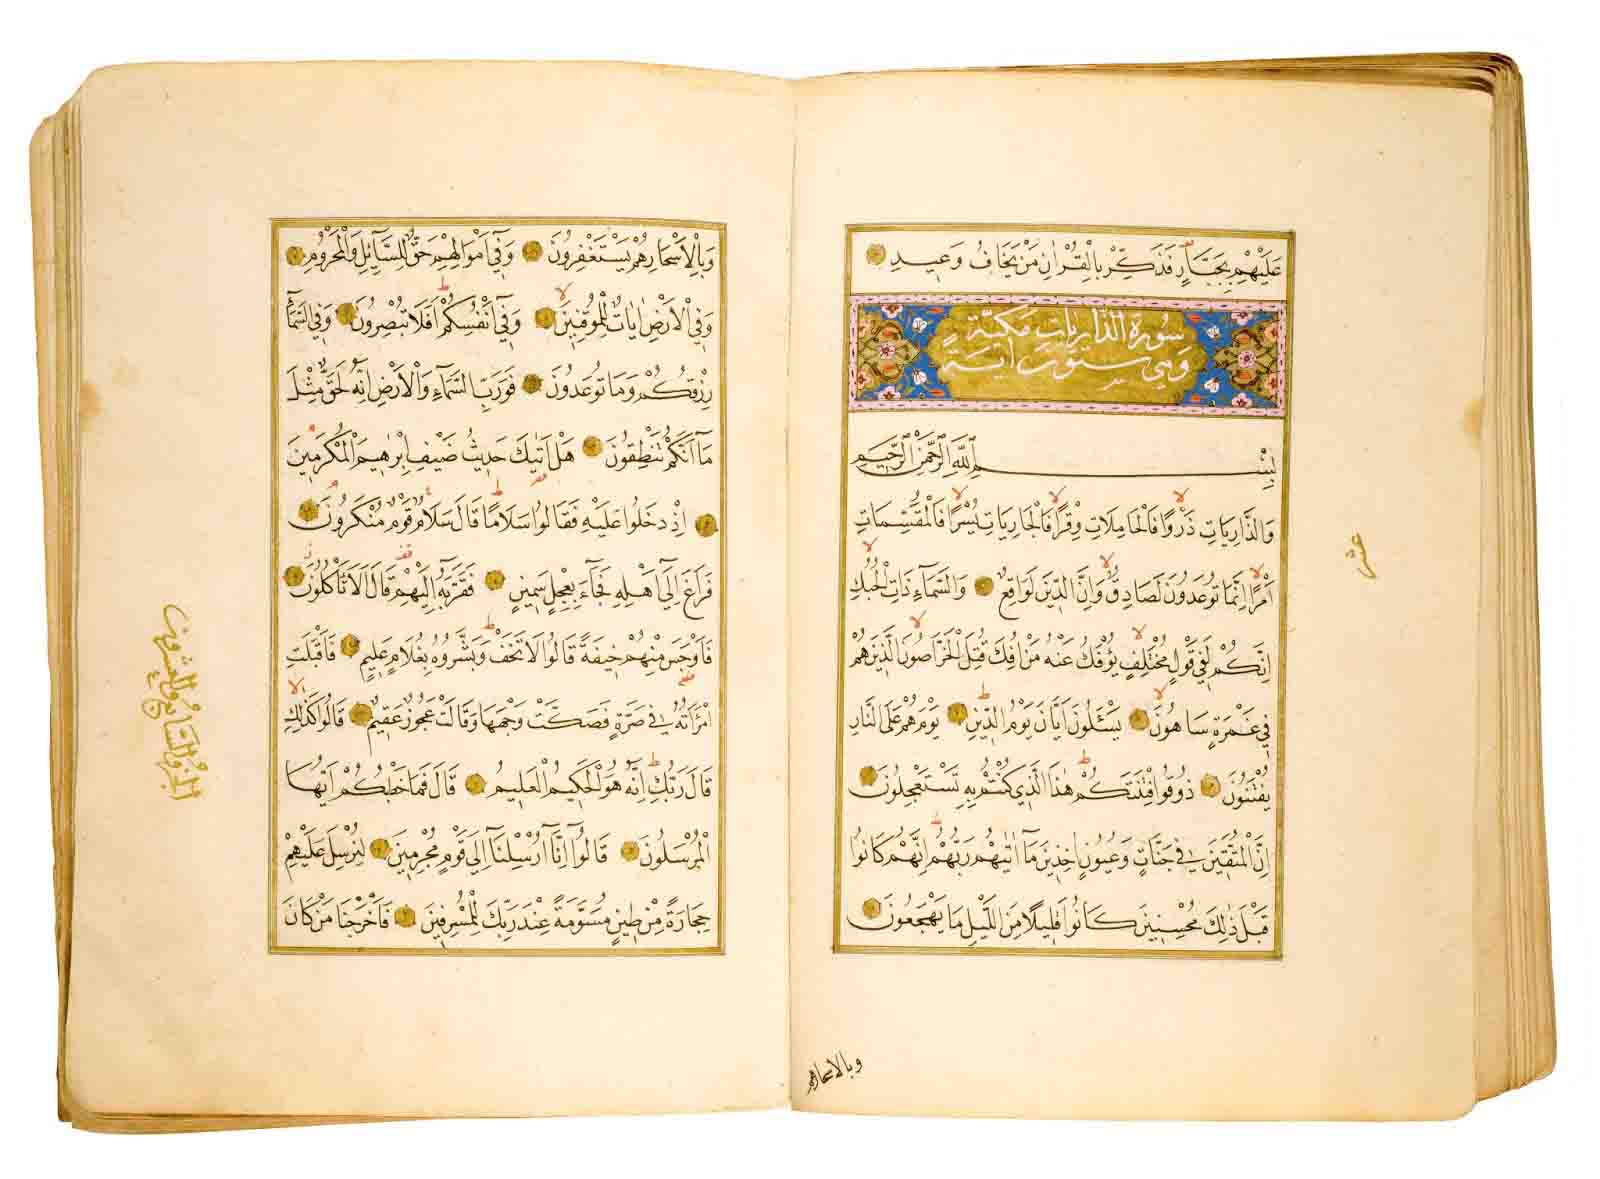 عَلَيْهِمْ بِجَبَّارٍ فَذَكِّرْ بِالْقُرْاٰنِ مَنْ يَخَافُ وَعِيدِ
سورة الذاريات مكية
وهي ستون اية
بِسْمِ اللّٰهِ الرَّحْمٰنِ الرَّحِيمِ
وَالذَّارِيَاتِ ذَرْوًا فَالْحَامِلَاتِ وِقْرًا فَالْجَارِيَاتِ يُسْرًا فَالْمُقَسِّمَاتِ
اَمْرًا اِنَّمَا تُوعَدُونَ لَصَادِقٌ وَاِنَّ الدِّينَ لَوَاقِعٌ وَالسَّمَاءِ ذَاتِ الْحُبُكِ
اِنَّكُمْ لَفِي قَوْلٍ مُخْتَلِفٍ يُؤْفَكُ عَنْهُ مَنْ اُفِكَ قُتِلَ الْخَرَّاصُونَ الَّذِينَ هُمْ
فِي غَمْرَةٍ سَاهُونَ يَسْئَلُونَ اَيَّانَ يَوْمُ الدِّينِ يَوْمَ هُمْ عَلَى النَّارِ
يُفْتَنُونَ ذُوقُوا فِتْنَتَكُمْ هٰذَا الَّذِي كُنْتُمْ بِهِ تَسْتَعْجِلُونَ
اِنَّ الْمُتَّقِينَ فِي جَنَّاتٍ وَعُيُونٍ اٰخِذِينَ مَا اٰتٰيهُمْ رَبُّهُمْ اِنَّهُمْ كَانُوا
قَبْلَ ذٰلِكَ مُحْسِنِينَ كَانُوا قَلِيلًا مِنَ اللَّيْلِ مَا يَهْجَعُونَ
وبالاسحارهم
عشر
وَبِالْاَسْحَارِ هُمْ يَسْتَغْفِرُونَ وَفِي اَمْوَالِهِمْ حَقٌّ لِلسَّائِلِ وَالْمَحْرُومِ
وَفِي الْاَرْضِ اٰيَاتٌ لِلْمُوقِنِينَ وَفِي اَنْفُسِكُمْ اَفَلَا تُبْصِرُونَ وَفِي السَّمَاءِ
رِزْقُكُمْ وَمَا تُوعَدُونَ فَوَرَبِّ السَّمَاءِ وَالْاَرْضِ اِنَّهُ لَحَقٌّ مِثْلَ
مَا اَنَّكُمْ تَنْطِقُونَ هَلْ اَتٰيكَ حَدِيثُ ضَيْفِ اِبْرٰهِيمَ الْمُكْرَمِينَ
اِذْ دَخَلُوا عَلَيْهِ فَقَالُوا سَلَامًا قَالَ سَلَامٌ قَوْمٌ مُنْكَرُونَ
فَرَاغَ اِلٰى اَهْلِهِ فَجَاءَ بِعِجْلٍ سَمِينٍ فَقَرَّبَهُ اِلَيْهِمْ قَالَ اَلَا تَأْكُلُونَ
فَاَوْجَسَ مِنْهُمْ خِيفَةً قَالُوا لَا تَخَفْ وَبَشَّرُوهُ بِغُلَامٍ عَلِيمٍ فَاَقْبَلَتِ
امْرَاَتُهُ فِي صَرَّةٍ فَصَكَّتْ وَجْهَهَا وَقَالَتْ عَجُوزٌ عَقِيمٌ قَالُوا كَذٰلِكِ
قَالَ رَبُّكِ اِنَّهُ هُوَ الْحَكِيمُ الْعَلِيمُ قَالَ فَمَا خَطْبُكُمْ اَيُّهَا
الْمُرْسَلُونَ قَالُوا اِنَّا اُرْسِلْنَا اِلٰى قَوْمٍ مُجْرِمِينَ لِنُرْسِلَ عَلَيْهِمْ
حِجَارَةً مِنْ طِينٍ مُسَوَّمَةً عِنْدَ رَبِّكَ لِلْمُسْرِفِينَ فَاَخْرَجْنَا مَنْ كَانَ
الجزء السابع والعشرون